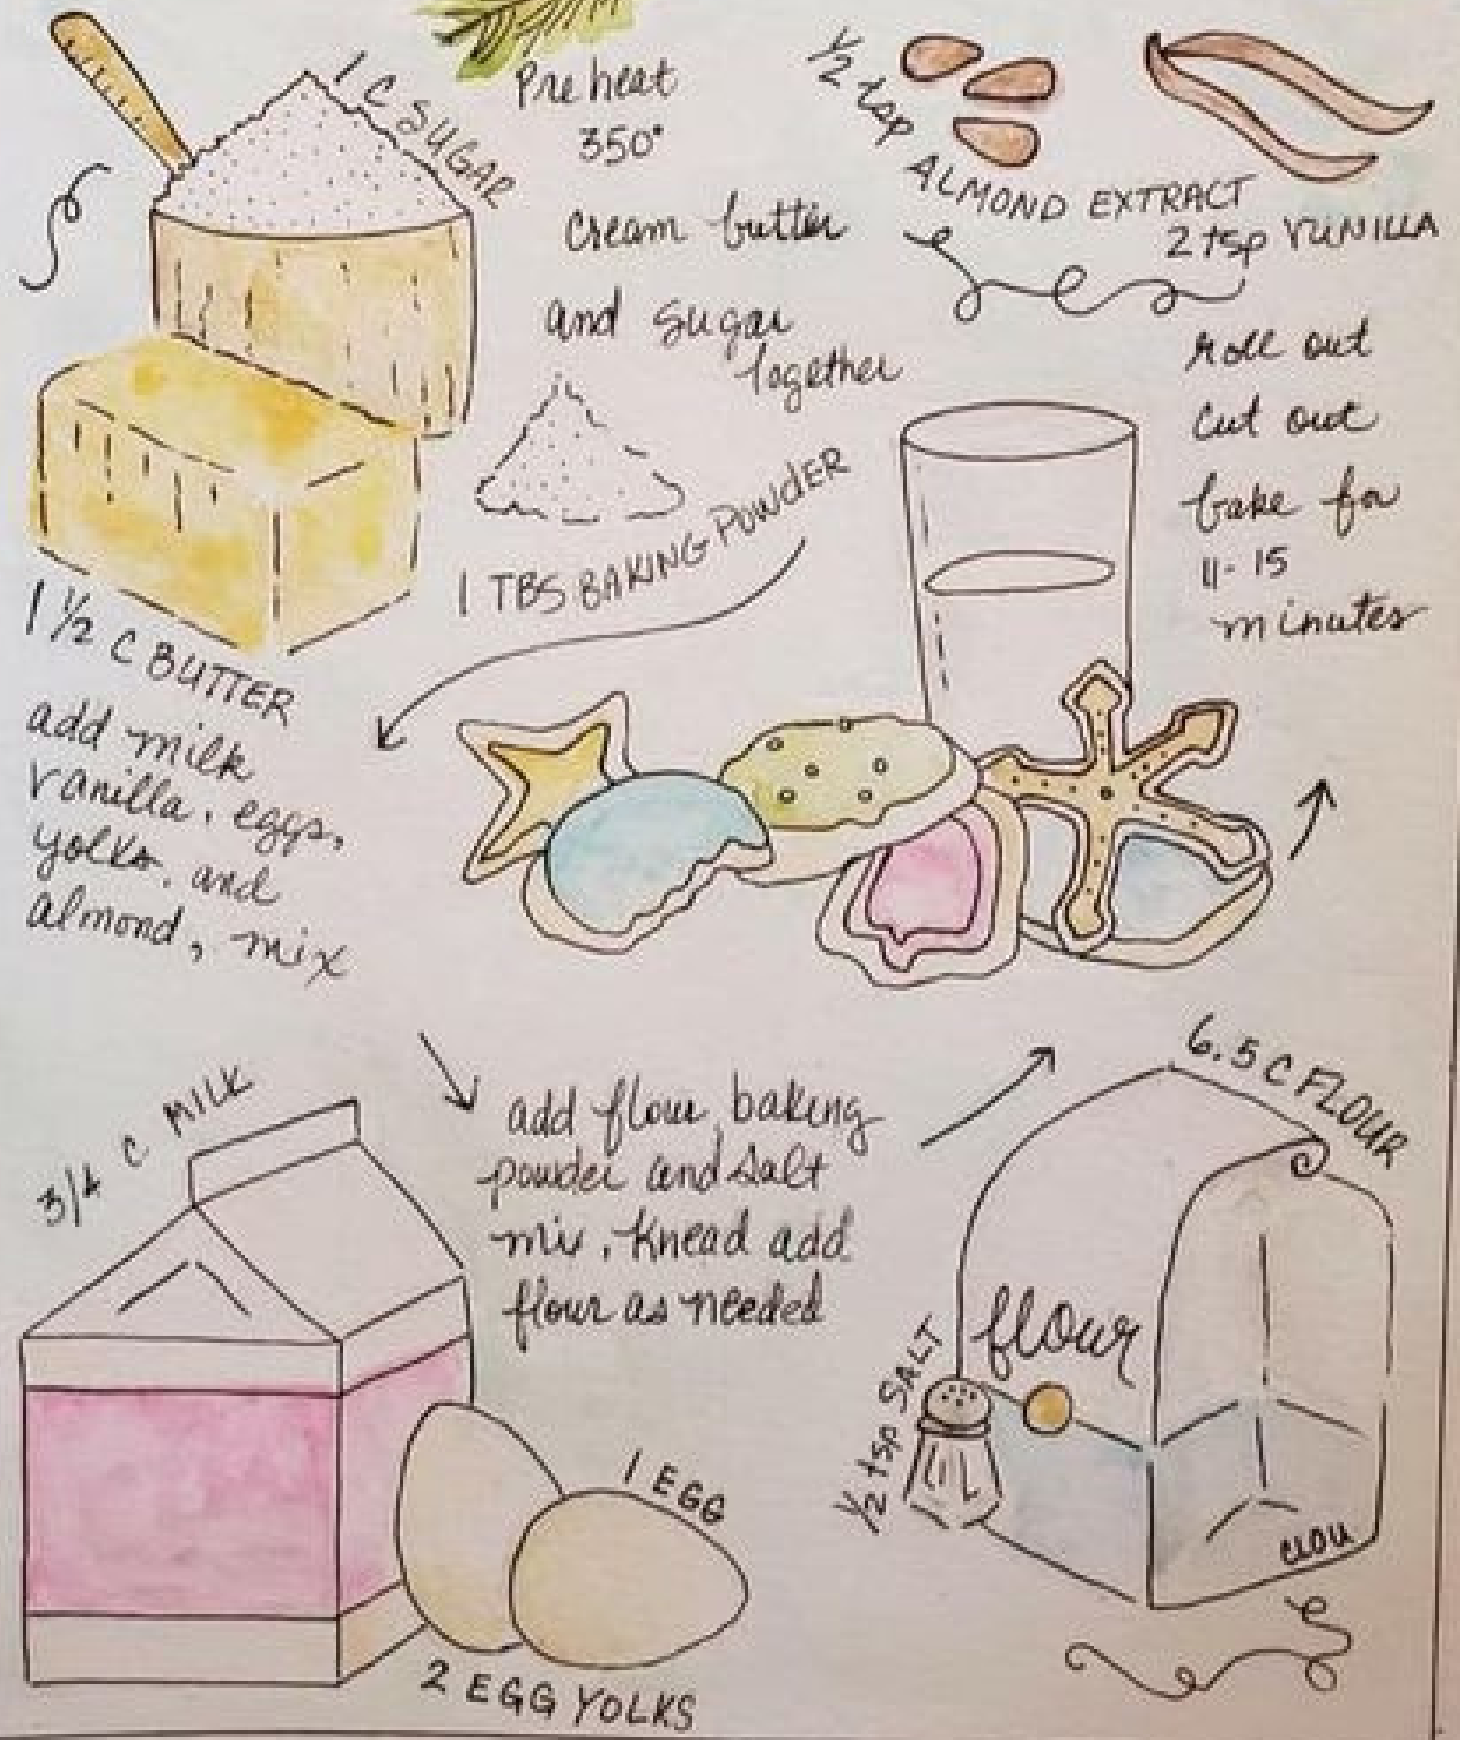 1 C SUGAR
Preheat
350°
cream butter
and sugar
together
1/2 tsp ALMOND EXTRACT
2 tsp VUNILLA
roll out
cut out
bake for
11-15
minutes
1 TBS BAKING POWDER
1 1/2 C BUTTER
add milk
vanilla, eggs,
yolks, and
almond, mix
3/4 C MILK
add flour, baking
powder and salt
mix, knead add
flour as needed
6.5 C FLOUR
flour
1/2 tsp SALT
1 EGG
2 EGG YOLKS